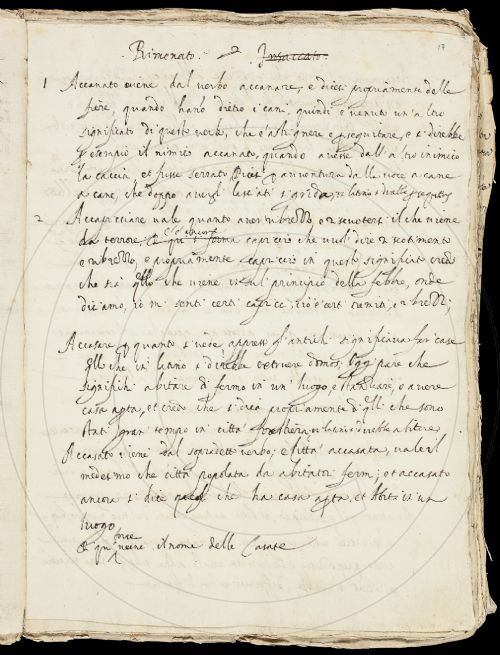 Rimenato. Insaccato. 19
1 Accanato viene dal verbo accanare, e dicesi propriamente delle
fiere, quando hanno dietro i cani, quindi è venuto un'altro
significato di questo verbo, che è astignere e seguitare, e si direbbe
esempio il nimico accanato, quando avesse dall'altro inimico
la caccia, et fusse serrato, avventura dalla voce a cane
a cane, che doppo lasciati si grida,
2 Accapricciare vale quanto aver ribrezzo o riscuotersi il che viene
da terrore, capriccio che vuol dire riscotimento
e ribrezzo, e propriamente capriccio in questo significato credo
che sia quello che viene in sul principio della febbre, onde
diciamo, io mi senti certi capricci, cioè certi tremiti, e ribrezzi;
Accasare quanto si vede appresso gl'antichi significava far case
quello che in latino si direbbe extruere domos; oggi pare che
significhi abitare di fermo in un luogo e stanziare, o avere
casa apta, et credo che si dica propriamente di quelli che sono
stati gran tempo in città forestiera, latino direbbe
Accasato viene dal sopradetto verbo; e città accasata, vale il
medesimo che città popolata da abitatori fermi; et accasato
ancora si dice che ha casa apta, et abita in un
luogo
et qui forse viene il nome delle Casate